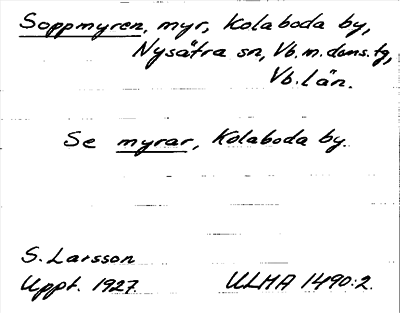 Soppmyren, myr, Kolaboda by,
Nysätra sn, Vb. m. doms. tg,
Vb. län.
Se myrar, Kolaboda by.
S. Larsson
Uppt. 1927.
ULMA 1490:2.